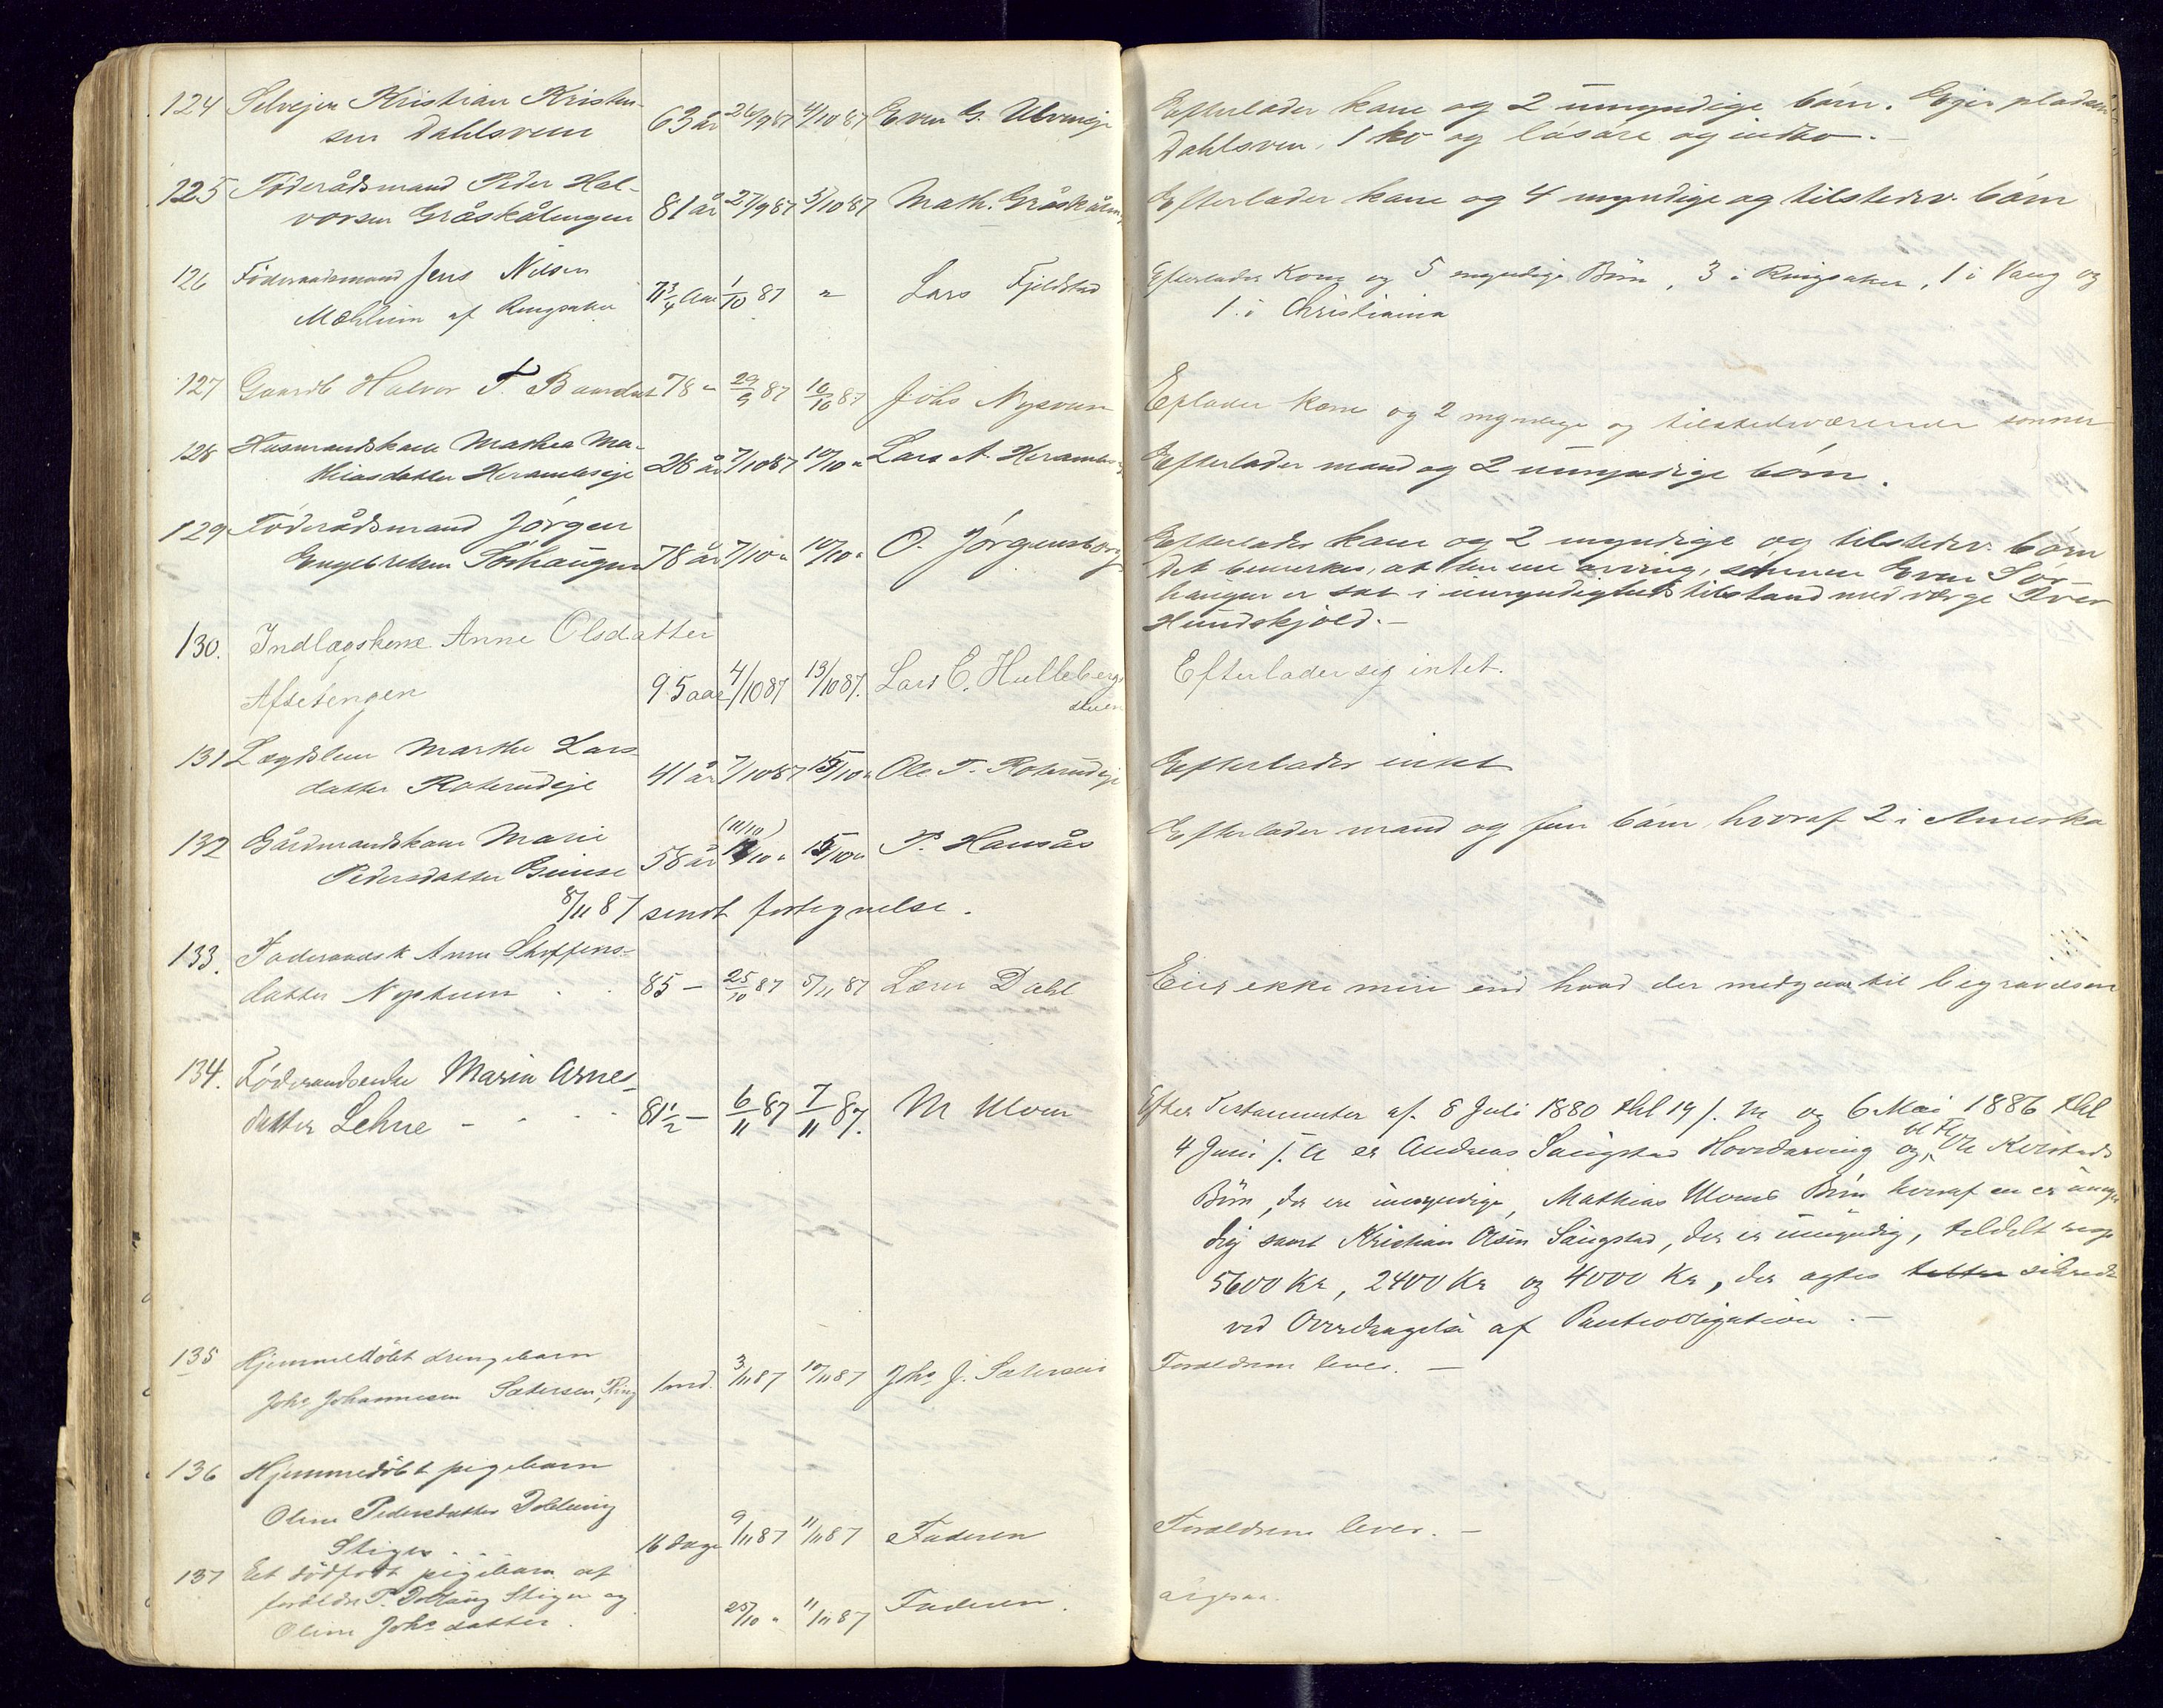 124 Selvejer Kristian Kristen-
sen Dahlsveen 63 år 26/9 87 4/10 87 Even G. Ulvenseje Efterlader kone og 2 umyndige børn. Ejer pladsen
Dahlsveen, 1 ko og løsøre og indbo.—
125 Føderådsmand Peder Hal-
vorsen Gråskålengen 81 år 27/9 87 5/10 87 Math. Gråskålen Efterlader kone og 4 myndige og tilstedev. børn
126 Føderaadsmand Jens Nilsen
Mæhlum af Ringsaker 71 3/4 Aar 1/10 87 " Lars Fjeldstad Efterlader Kone og 5 myndige Børn, 3 i Ringsaker, 1 i Vang og
1 i Christiania
127 Gaardb Halvor T. Baardset 78 " 29/9 87 10/10 87 Johs Nysveen Eflader kone og 2 myndige og tilstedeværende sønner
128 Husmandskone Mathea Ma-
thiasdatter Herambseje 28 år 7/10 87 10/10 " Lars A.Herambseje Efterlader mand og 2 umyndige børn.
129 Føderådsmand Jørgen
Engebretsen Sørhaugen 78 år 7/10 " 10/10 " O. Jørgensberg Efterlader kone og 2 myndige og tilstedev. børn
Det bemerkes, at den ene arving, sønnen Even Sør-
haugen er sat i umyndigheds tilstand med værge Iver
Hundskjold.—
130. Indlægskone Anne Olsdatter
Afsetengen 95 aar 4/10 87 13/10 87. Lars E. Hulleberg-
stuen Efterlader sig intet.
131 Lægdslem Marthe Lars-
datter Roterudeje 41 år 7/10 87 15/10 " Ole T. Roterudeje Efterlader intet
132 Gårdmandskone Marie
Pedersdatter 58 år (11/10) 11/10 " 15/10 " P. Hansås Efterlader mand og fem børn, hvoraf 2 i Amerika
8/11 87 sendt fortegnelse.
133. Føderaadsk Anne Steffens-
datter Nystuen 85 — 25/10 87 5/11 87 Lærer Dahl Eier ikke mere end hvad der medgaar til begravelsen
134. Føderaadsenke Maria Arnes-
datter Lehne 81 1/2 — 6/11 87 7/11 87. M Ulven Efter Testamenter af 8 Juli 1880 thl 19 f. M og 6 Mai 1886 thl
4 Juni f. A er Andreas Saugstad Hovedarving og, Ole Kvistads
Børn, der ere umyndige, Mathias Ulvens Børn hvoraf en er umyn
dig samt Kristian Olsen Saugstad, der er umyndig, tildelt resp
5600 Kr, 2400 Kr og 4000 Kr, der agtes sikrede
ved Overdragelse af Panteobligation.—
135 Hjemmedøbt drengebarn
Johs Johannesen Sætersen, Ring 1 md. 3/11 87 10/11 87 Johs J. Sætersen Forældrene lever.—
136 Hjemmedøbt pigebarn
Oline Pedersdatter Dobloug
Stigen 16 dage 9/11 87 11/11 87 Faderen Forældrene lever.—
137 Et dødfødt pigebarn af
forældre P. Dobloug Stigen og
Oline Johs datter. 25/10 " 11/11 87 Faderen.